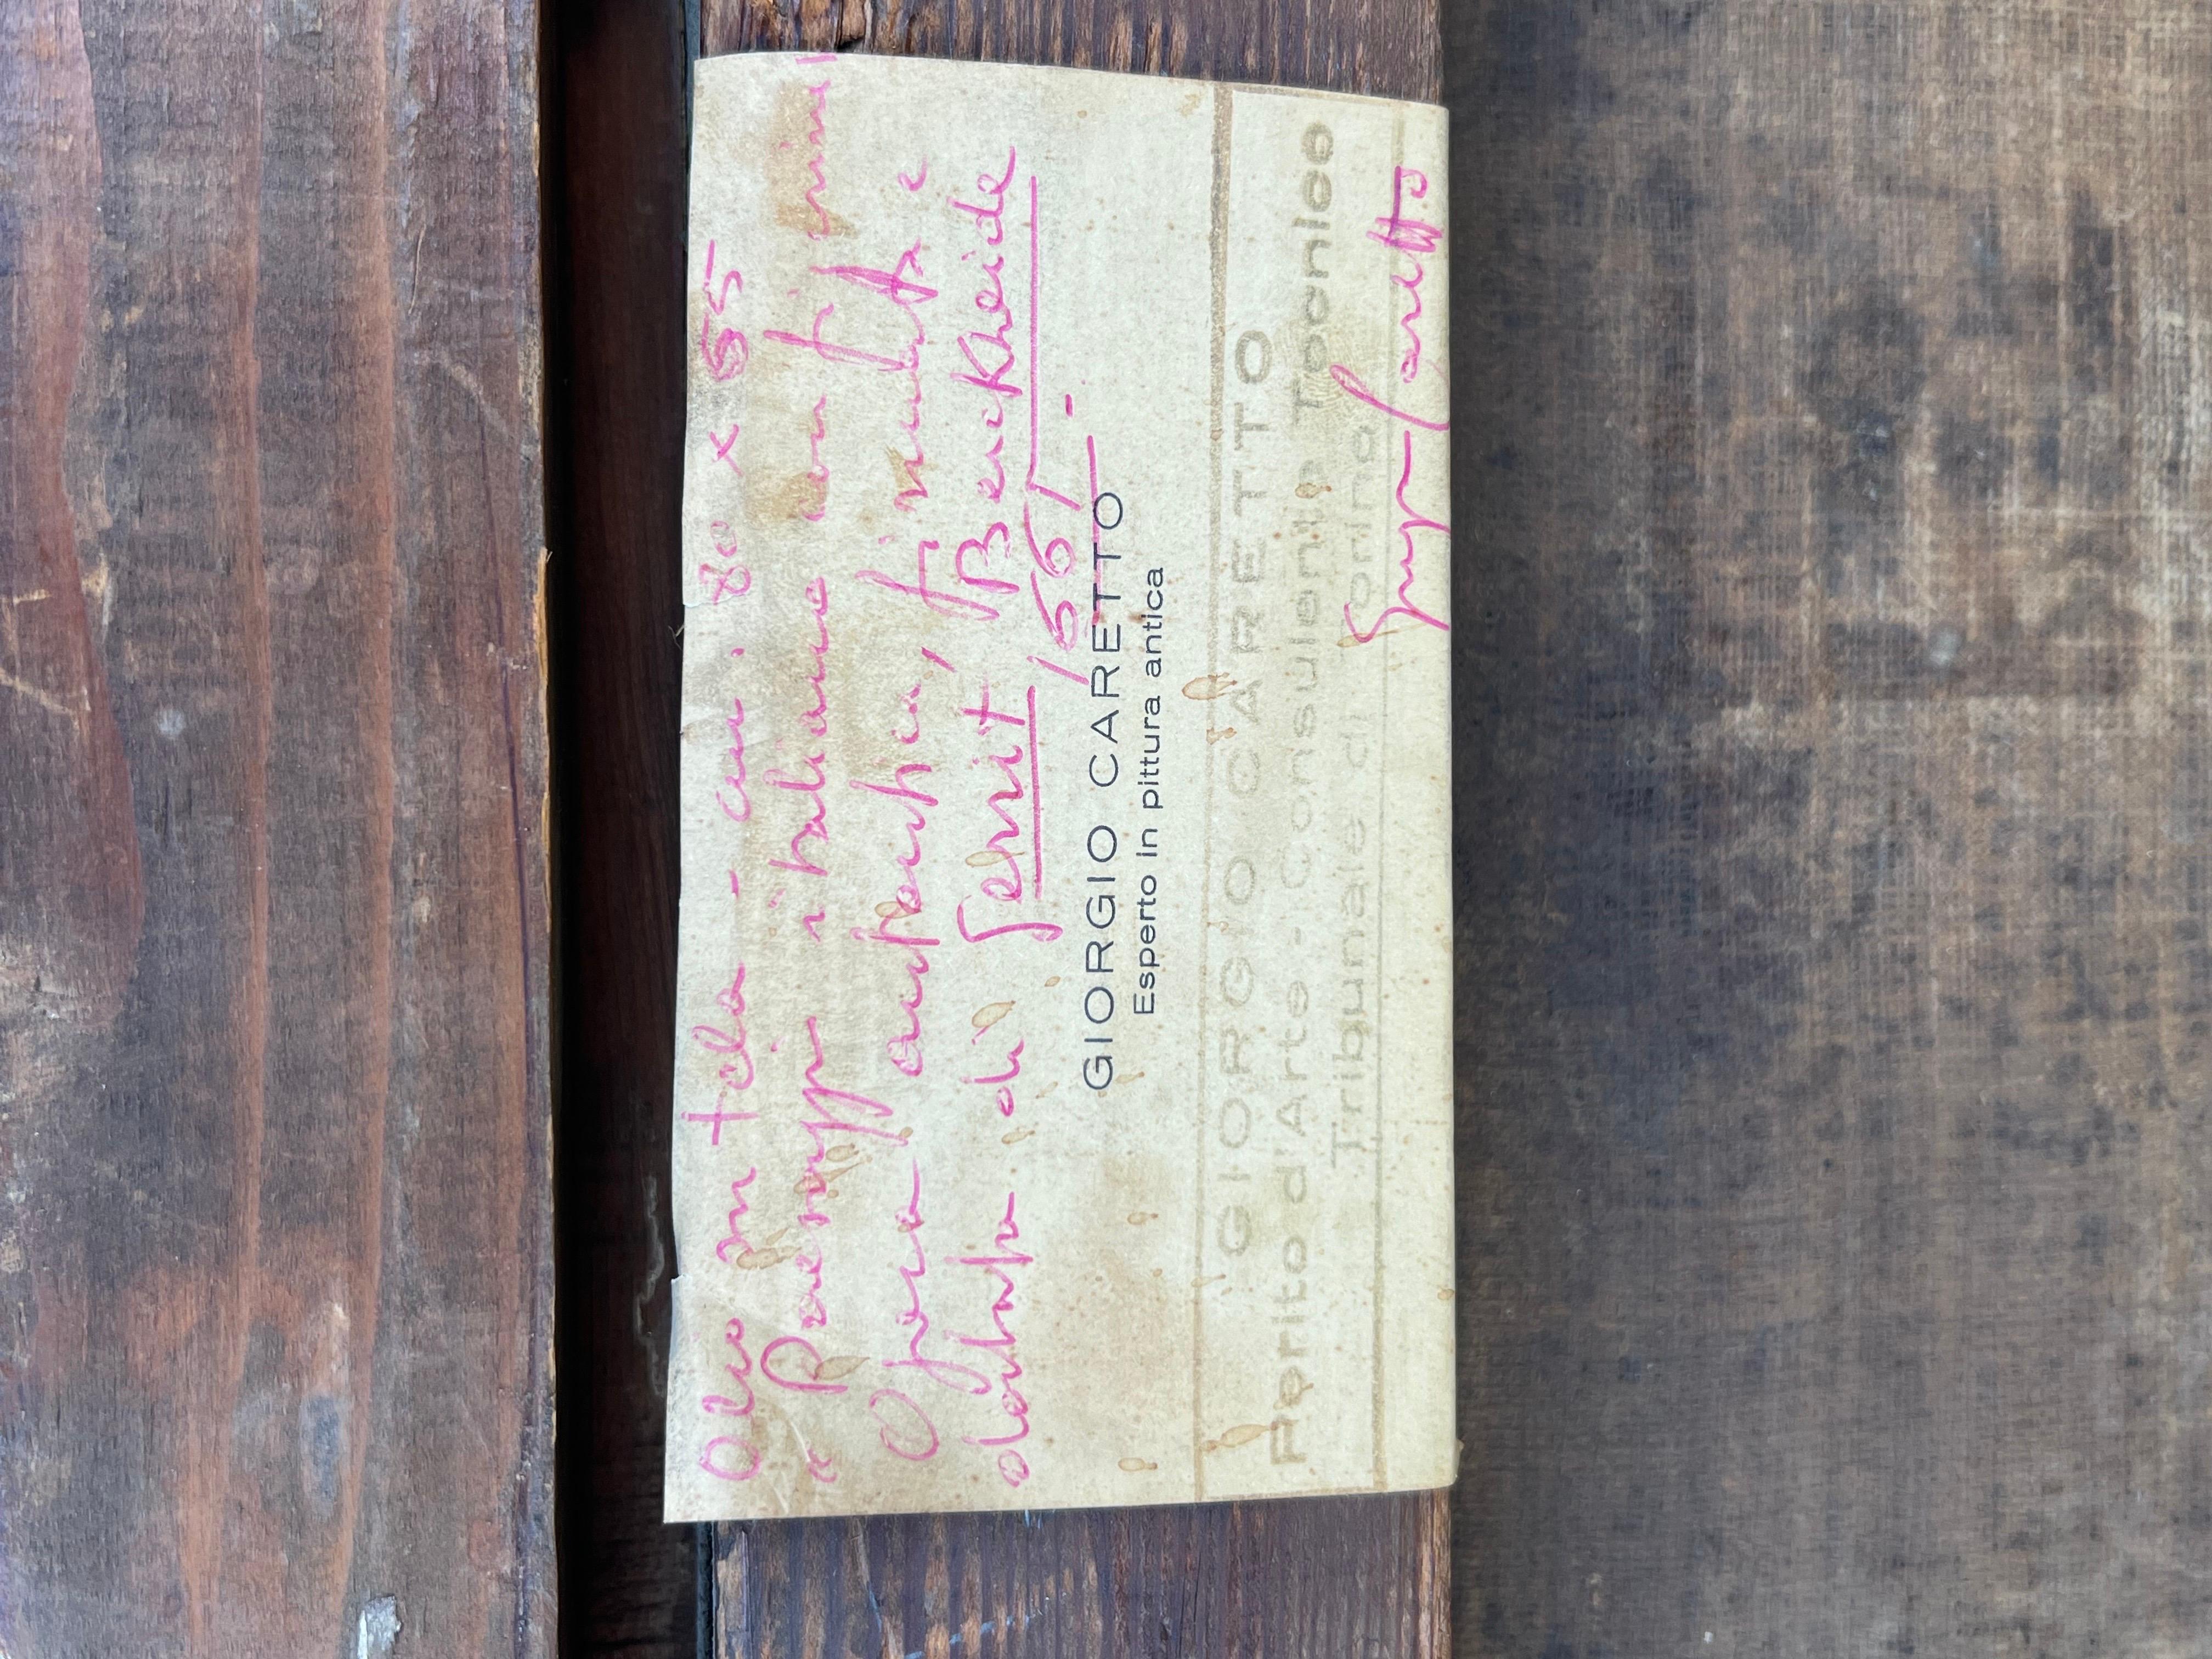 Olio su tela - cm. 80 x 65
" Paesaggio italiano con figurine
Opera autentica, firmata e
datata di Gerrit Berckheide
1661 -
GIORGIO CARETTO
Esperto in pittura antica
GIORGIO CARETTO
Perito d'Arte - Consulente Tecnico
Tribunale di Torino
Giorgio Caretto